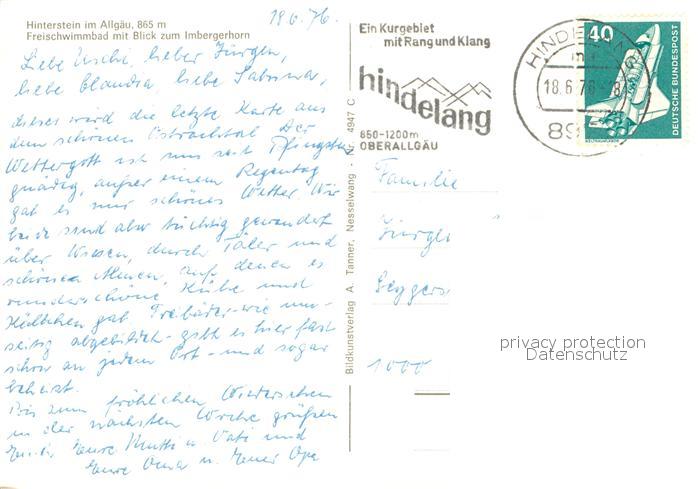 Hinterstein im Allgäu, 865 m
Freischwimmbad mit Blick zum Imbergerhorn
18.6.76.
Liebe Uschi, lieber Jürgen,
liebe Claudia, liebe Sabrina,
dieses wird die letzte Karte aus
dem schönen Ostrachtal. Der
Wettergott ist uns seit Pfingsten
gnädig, außer einem Regentag
gab es nur schönes Wetter. Wir
beide sind aber tüchtig gewandert
über Wiesen, durch Täler und
schönen Almen, auf denen es
wunderschöne Kühe und
Kälbchen gab. Freibäder - wie um-
seitig abgebildet - gibt es hier fast
schon an jedem Ort - und sogar
beheizt.
Bis zum fröhlichen Wiedersehen
in der nächsten Woche grüßen
Euch Eure Mutti u. Vati und
Eure Oma u. Euer Opa
Bildkunstverlag A. Tanner, Nesselwang . Nr. 4947 C
Ein Kurgebiet
mit Rang und Klang
hindelang
850-1200m
OBERALLGÄU
HINDELANG
18.6.76-18
89
40
DEUTSCHE BUNDESPOST
Familie
Jürge
1000
privacy protection
Datenschutz